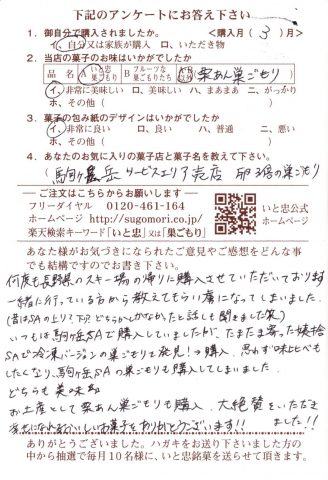 下記のアンケートにお答え下さい
1. 御自分で購入されましたか。 <購入月( 3 )月>
イ、自分又は家族が購入 ロ、いただき物
2. 当店の菓子のお味はいかがでしたか
品名 A いと忠巣ごもり B フルーツな巣ごもりたち 栗あん巣ごもり
イ、非常に美味しい ロ、美味しい ハ、まあまあ ニ、がっかり
ホ、その他( )
3. 菓子の包み紙のデザインはいかがでしたか
イ、非常に良い ロ、良い ハ、普通 ニ、悪い
ホ、その他( )
4. あなたのお気に入りの菓子店と菓子名を教えて下さい。
駒ヶ岳サービスエリア売店 卵3個の巣ごもり
ご注文はこちらからお願いします
フリーダイヤル 0120-461-164
ホームページ http://sugomori.co.jp/
楽天検索キーワード「いと忠」又は「巣ごもり」
いと忠公式
ホームページ
あなた様がお気づきになられたご意見やご感想をどんな事
でも結構ですのでお書き下さい。
何度も長野県のスキー場の帰りに購入させていただいております
一緒に行っている方から教えてもらい虜になってしまいました。
(昔はSAの上りと下り、どちらかしかなかったと話しも聞きました笑)
いつもは駒ヶ岳SAで購入していましたが、たまたま寄った姨捨
SAで冷凍バージョンの巣ごもりを発見!→購入、思わず味比べも
したくなり、駒ヶ岳SAの巣ごもりも購入してしまいました。
どちらも美味
お土産として栗あん巣ごもりも購入、大絶賛をいただき
ました!!
おいしいお菓子をありがとうございます!!
ありがとうございました。ハガキをお送り下さいました方の
中から抽選で毎月10名様に、いと忠銘菓を送らせて頂きます。